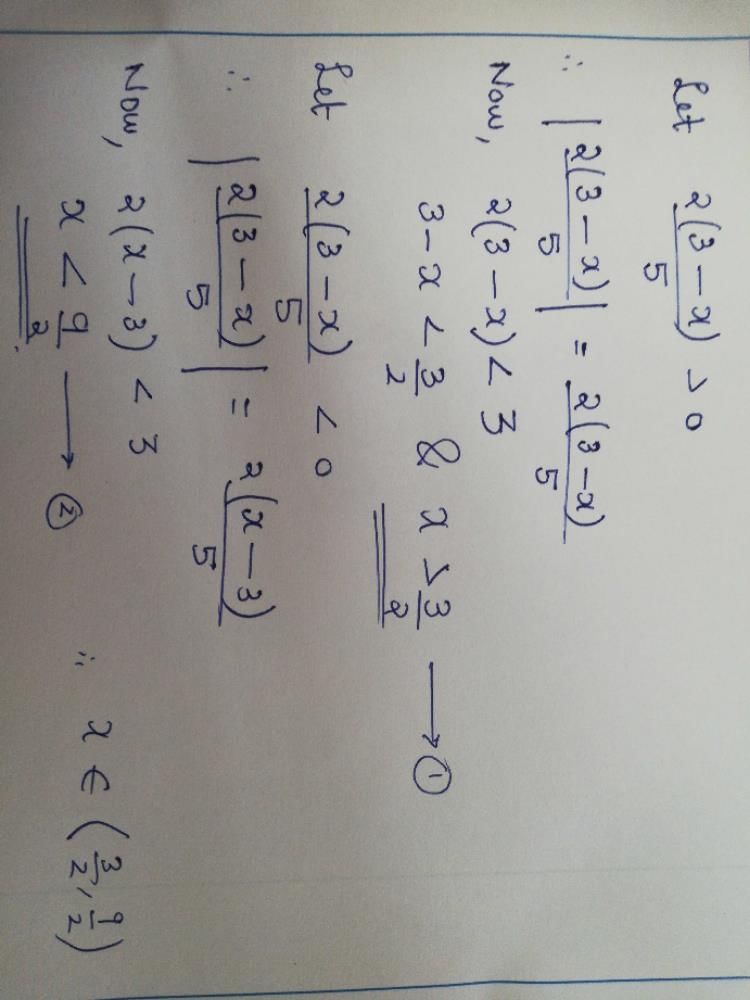 Let 2(3-x)/5 > 0
∴ |2(3-x)/5| = 2(3-x)/5
Now, 2(3-x) < 3
3-x < 3/2 & x > 3/2 → ①
Let 2(3-x)/5 < 0
∴ |2(3-x)/5| = 2(x-3)/5
Now, 2(x-3) < 3
x < 9/2 → ②
∴ x ∈ (3/2, 9/2)